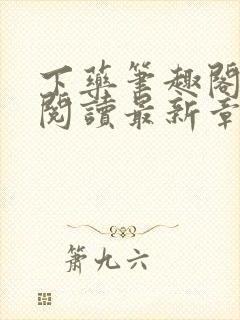 下藥筆趣閣
閱讀最新章
簫九六